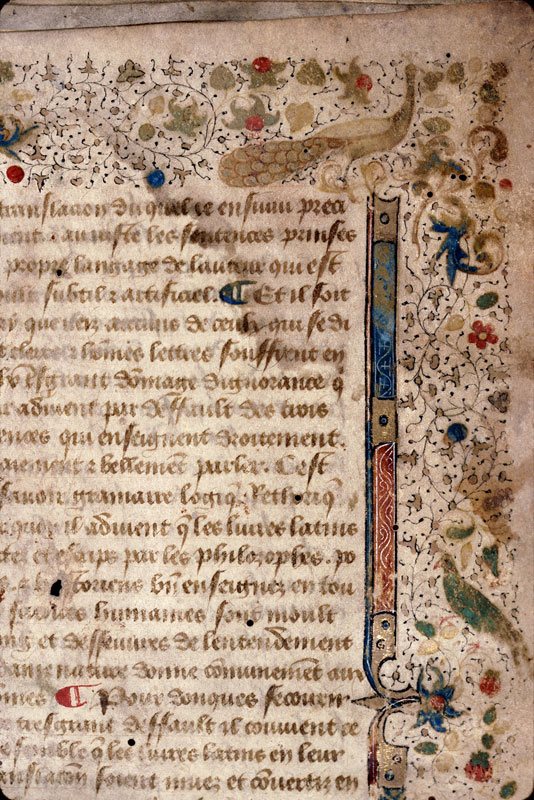 translacion du quel ie ensuiui preci
ment. au iuste les sentences prinses
propre langage de lauteur qui est
moult subtil ⁊ artificiel. ¶ Et il soit
que tieix aucuns de ceulx qui se di
clercs ⁊ hom̃es lettres souffrent en
tresgrant dom̃age dignorance q̃
aduient par deffault des trois
ences qui enseignent droitement.
raiement ⁊ bellement parler. Cest
sauoir gramaire logiq̃. Rethoriq̃
quoy il aduient q̃ les liures latins
et escrips par les philozophes. po
⁊ hystoriens bñ enseignez en tou
sciences humaines sont moult
et desseuures de lentendement
nature donne com̃unement aux
om̃es ¶ Pour donques secourir
tresgrant deffault il conuient ce
semble q̃ les liures latins en leur
translacion soient muez et conuertiz en